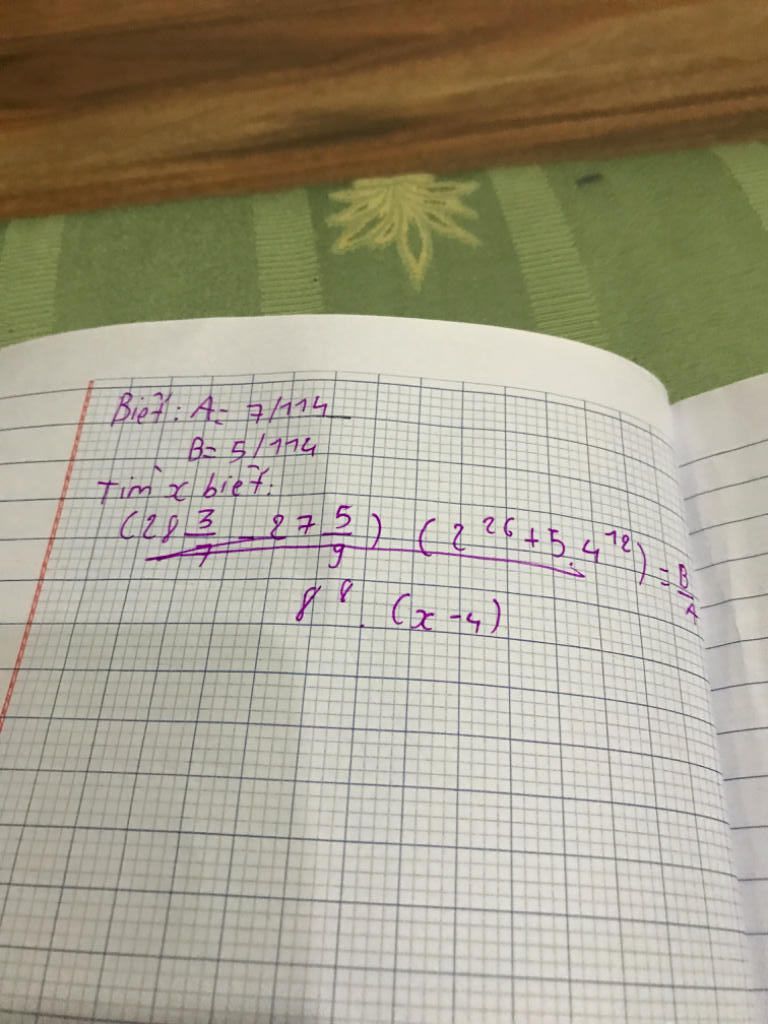 Biết: A = 7/114
B = 5/114
Tìm x biết:
(28 3/7 - 27 5/9) (2^26 + 5.4^12) = B/A
8^8 . (x - 4)